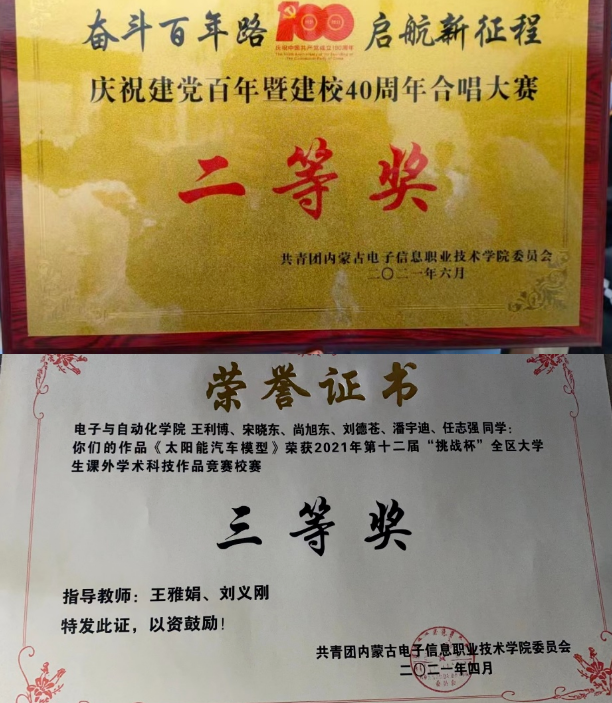 奋斗百年路 100 启航新征程
庆祝中国共产党成立100周年
庆祝建党百年暨建校40周年合唱大赛
二等奖
共青团内蒙古电子信息职业技术学院委员会
二〇二一年六月
荣誉证书
电子与自动化学院 王利博、宋晓东、尚旭东、刘德苍、潘宇迪、任志强 同学：
你们的作品《太阳能汽车模型》荣获2021年第十二届“挑战杯”全区大学
生课外学术科技作品竞赛校赛
三等奖
指导教师：王雅娟、刘义刚
特发此证，以资鼓励！
共青团内蒙古电子信息职业技术学院委员会
二〇二一年四月